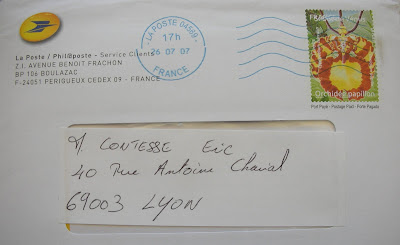 La Poste / Phil@poste - Service Clients
Z.I. AVENUE BENOIT FRACHON
BP 106 BOULAZAC
F-24051 PERIGUEUX CEDEX 09 - FRANCE
LA POSTE 04569
17h
26 07 07
FRANCE
FRANCE
Orchidée papillon
Port Payé - Postage Paid - Porte Pagado
M CONTESSE Eric
40 Rue Antoine Charial
69003 LYON